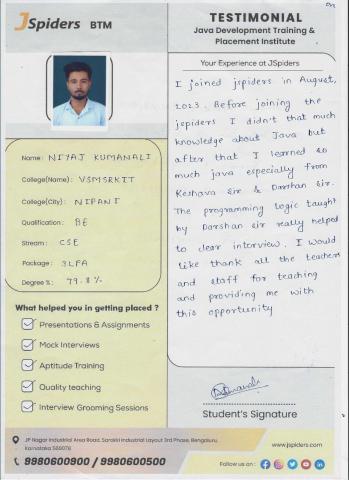 JSpiders BTM
TESTIMONIAL
Java Development Training &
Placement Institute
Your Experience at JSpiders
I joined jspiders in August,
2023. Before joining the
jspiders I didn't that much
knowledge about Java but
after that I learned so
much java especially from
Keshava Sir & Darshan Sir.
The programming logic taught
by Darshan sir really helped
to clear interview. I would
like thank all the teachers
and staff for teaching
and providing me with
this opportunity
Name: NIYAJ KUMANALI
College(Name): VSMSRKIT
College(City): NIPANI
Qualification: BE
Stream: CSE
Package: 3LPA
Degree %: 79.8%
What helped you in getting placed ?
Presentations & Assignments
Mock Interviews
Aptitude Training
Quality teaching
Interview Grooming Sessions
Student's Signature
JP Nagar Industrial Area Road, Sarakki Industrial Layout 3rd Phase, Bengaluru,
Karnataka 560078
9980600900 / 9980600500
www.jspiders.com
Follow us on :